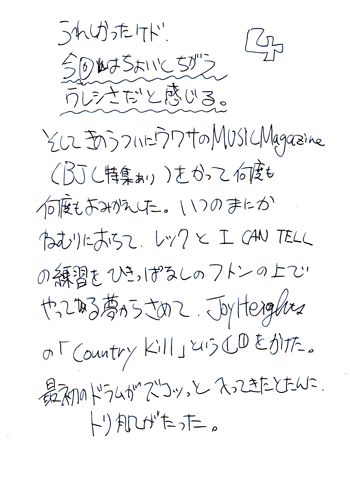 うれしかったケド.
4
今回はちょいとちがう
ウレシさだと感じる。
そしてきのうついにウワサのMUSIC Magazine
(BJC特集あり)をかって何度も
何度もよみかえした。いつのまにか
ねむりにおちて、レックと I CAN TELL
の練習をひきっぱなしのフトンの上で
やってる夢からさめて、Joy Heights
の「Country Kill」というCDをかけた。
最初のドラムがズコッっと入ってきたとたんに、
トリ肌がたった。